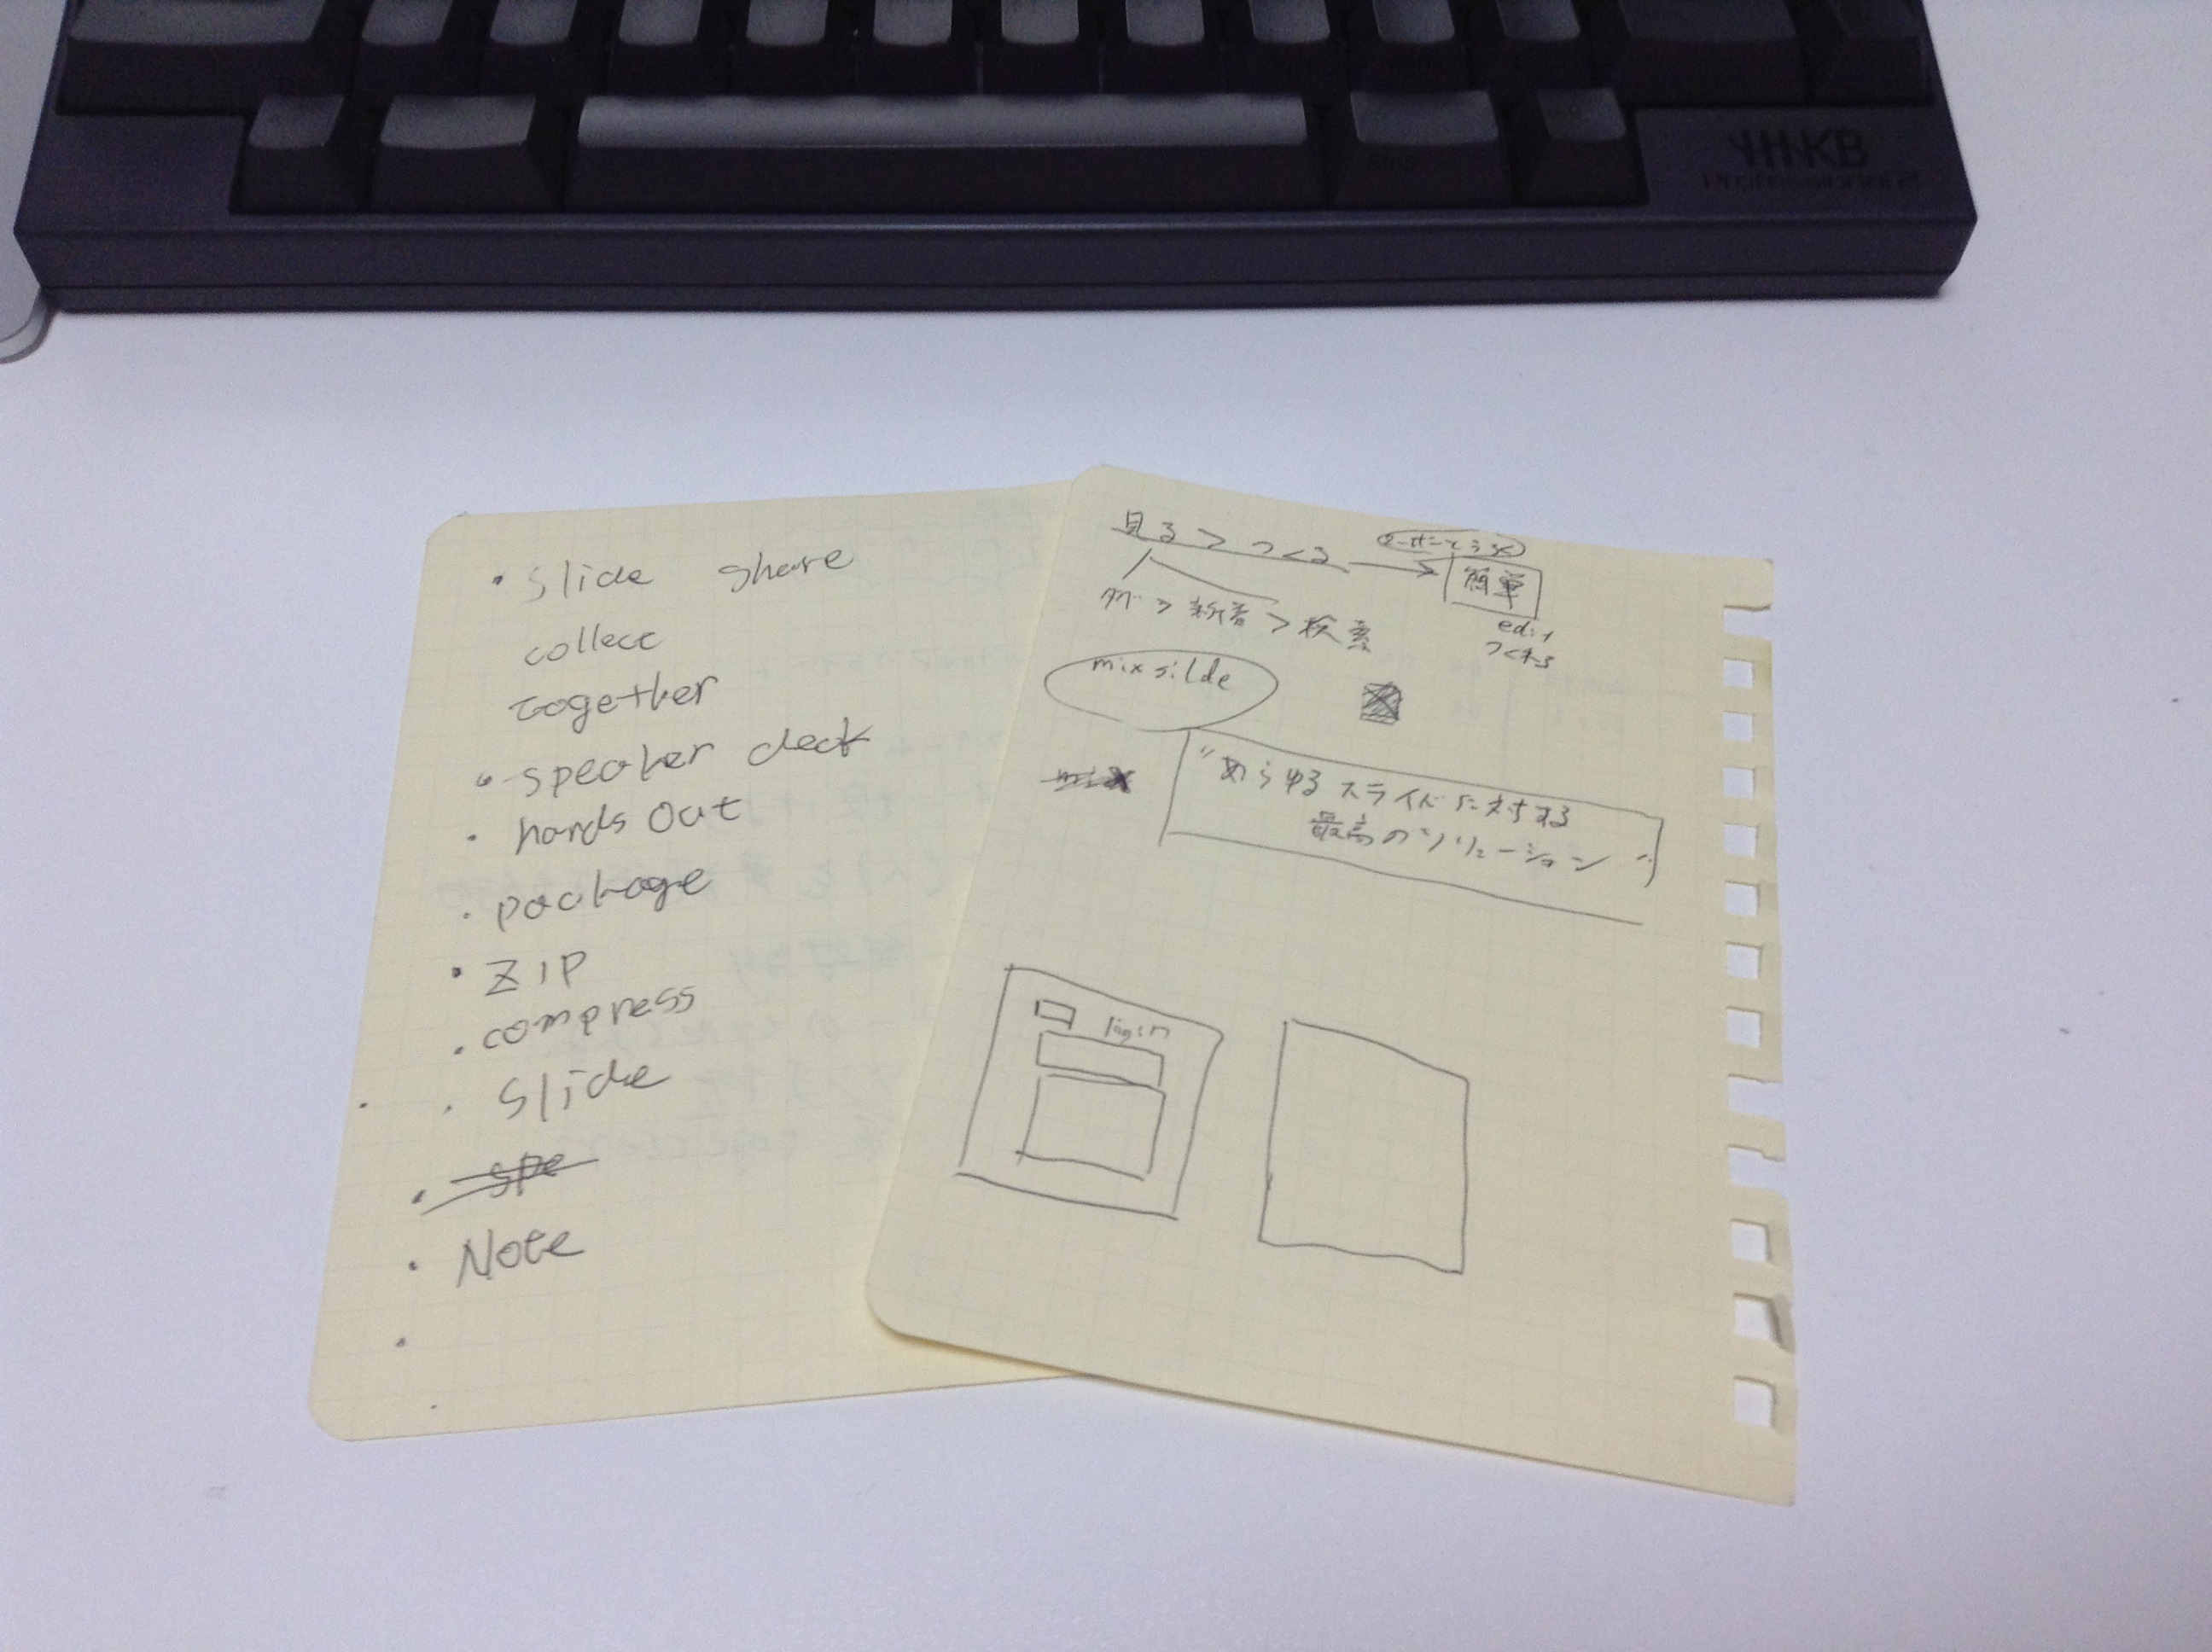 HHKB
Professional 2
・ slide share
collect
together
・ speaker deck
・ hands Out
・ package
・ ZIP
・ compress
・ slide
・ spe
・ Note
見る > つくる → 簡単
> 新着 > 検索
edit
mix silde
mix
"あらゆるスライドに対する
最高のソリューション"
login